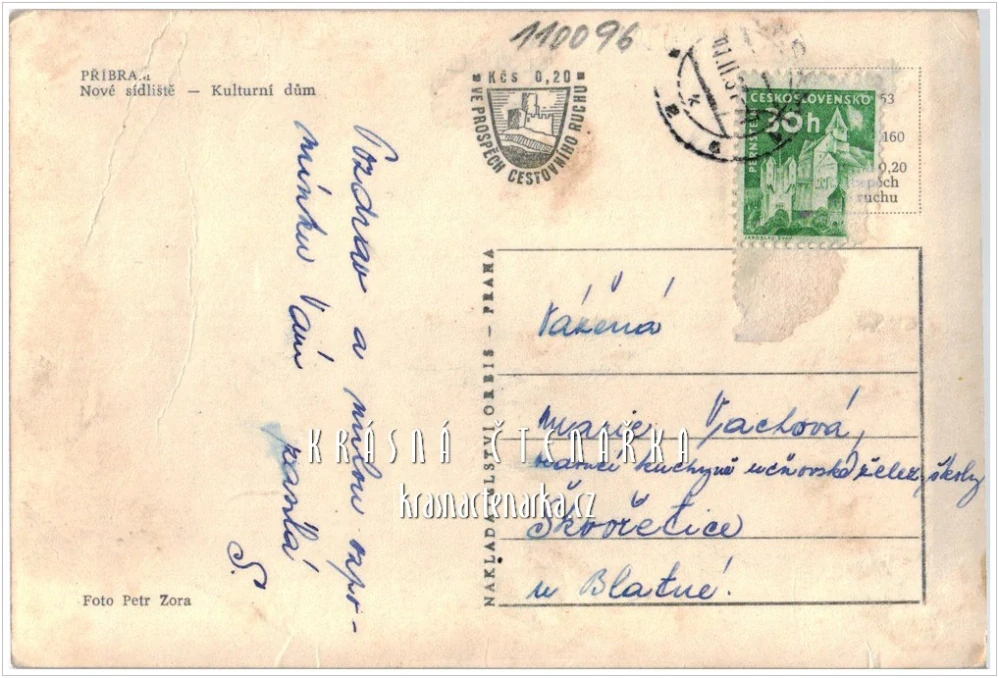 110096
PŘÍBRAM
Nové sídliště — Kulturní dům
Kčs 0,20
VE PROSPĚCH CESTOVNÍHO RUCHU
ČESKOSLOVENSKO
30h
PERNŠTEJN
JAROSLAV
53
160
0,20
ruchu
Pozdrav a milou vzpo-
mínku Vám
zasílá
S.
NAKLADATELSTVÍ ORBIS — PRAHA
Vážená
Marie Vachová,
kuchyně učňovské želez. školy
Škvořetice
u Blatné!
KRÁSNÁ ČTENÁŘKA
krasnactenarka.cz
Foto Petr Zora